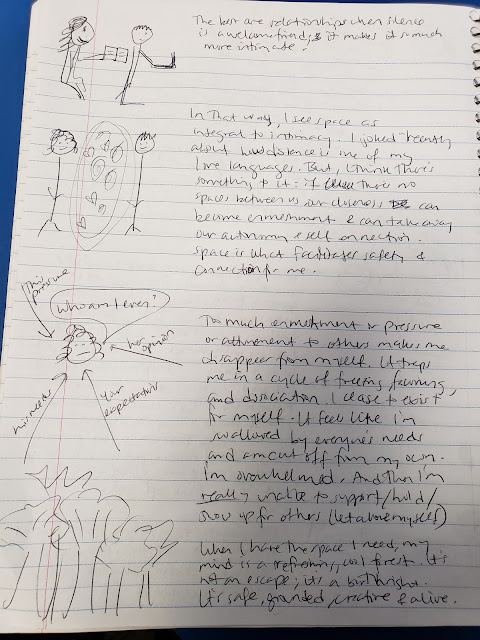 The best are relationships when silence
is a welcome friend, & it makes it so much
more intimate!
In that way, I see space as
integral to intimacy. I joked recently
about how distance is one of my
love languages. But, I think there's
something to it: if there's no
spaces between us, our closeness can
become enmeshment & can take away
our autonomy & self connection.
Space is what facilitates safety &
connection for me.
This pressure
Who am I even?
her opinion
his needs
Your expectations
Too much enmeshment or pressure
or attunement to others makes me
disappear from myself. It traps
me in a cycle of freezing, fawning,
and dissociation. I cease to exist
for myself. It feels like I'm
swallowed by everyone's needs
and am cut off from my own.
I'm overwhelmed. And then I'm
really unable to support/hold/
show up for others (let alone myself)
When I have the space I need, my
mind is a refreshing, cool forest. It's
not an escape; it's a birthright.
It's safe, grounded, creative & alive.